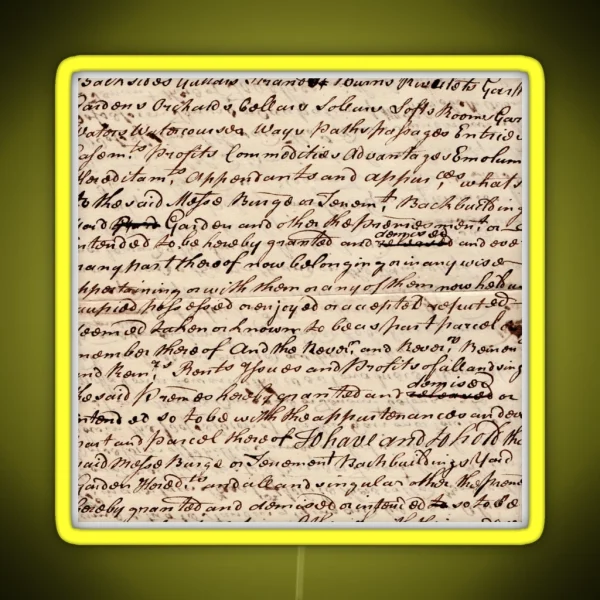 Backsides
Gardens Orchards Cellars Sollars Softs Rooms Gar
Watercourses Ways Paths Passages Entries
Easem.ts Profits Commodities Advantages Emolum
Hereditam.ts Appendants and appur.ces what s
to the said Messe Burge or Tenem.t Backbuilding
Yard Garden and other the premes ment.d or
intended to be hereby granted and demised released and eve
any part thereof now belonging or in any wise
appertaining or with them or any of them now held
occupied possessed or enjoyed or accepted reputed
deemed taken or known to be as part parcel o
member thereof And the Rever.n and Rever.ns Remain
and Rem.rs Rents Issues and Profits of all and sing
the said Premes hereby granted and demised released or
intended so to be with the appurtenances and ev
part and parcel thereof To have and to hold the
said Messe Burge or Tenement Backbuildings Yard
Garden Heredts and all and singular other the preme
hereby granted and demised or intended to so to be